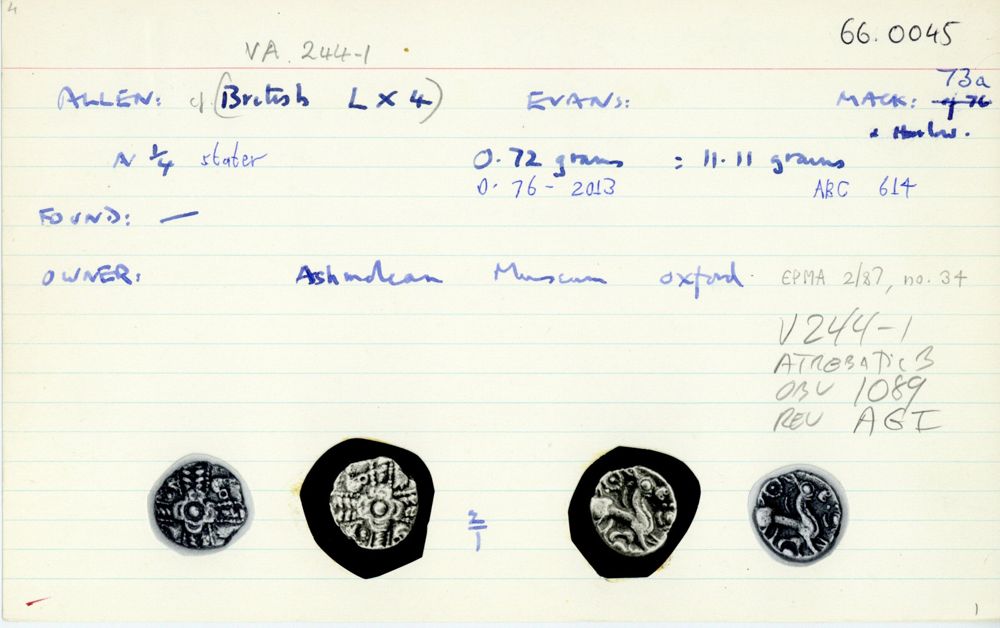 4
66.0045
VA. 244-1
ALLEN: cf. (British L X 4) EVANS: MACK: 73a
cf 76
N ¼ stater 0.72 grams : 11.11 grams
D. 76 - 2013 ABC 614
FOUND: —
OWNER: Ashmolean Museum Oxford. EPMA 2/87, no. 34
V244-1
ATREBATIC B
OBV 1089
REV AGI
2/1
1